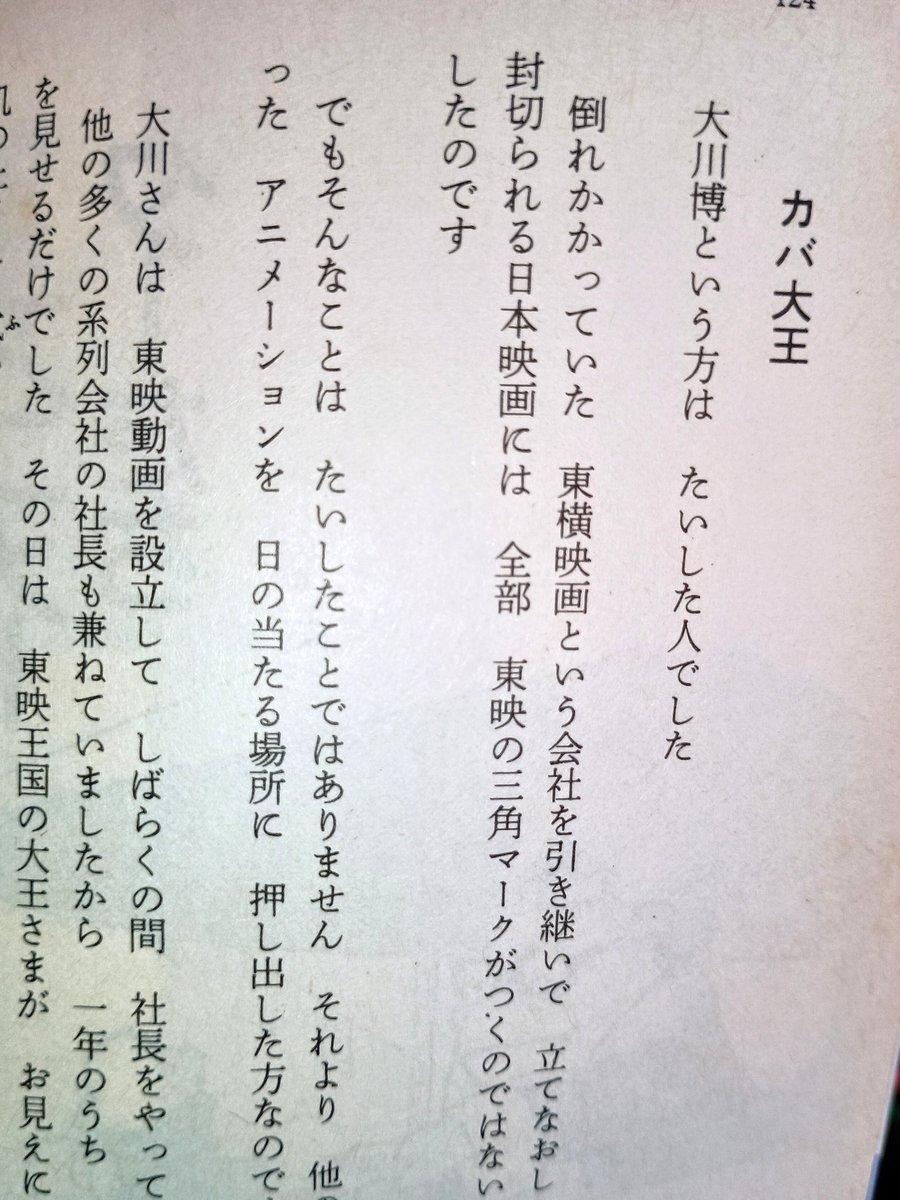 124
カバ大王
大川博という方は　たいした人でした
倒れかかっていた　東横映画という会社を引き継いで　立てなおし
封切られる日本映画には　全部　東映の三角マークがつくのではない
したのです
でもそんなことは　たいしたことではありません　それより　他の
った　アニメーションを　日の当たる場所に　押し出した方なので
大川さんは　東映動画を設立して　しばらくの間　社長をやって
他の多くの系列会社の社長も兼ねていましたから　一年のうち
を見せるだけでした　その日は　東映王国の大王さまが　お見えに